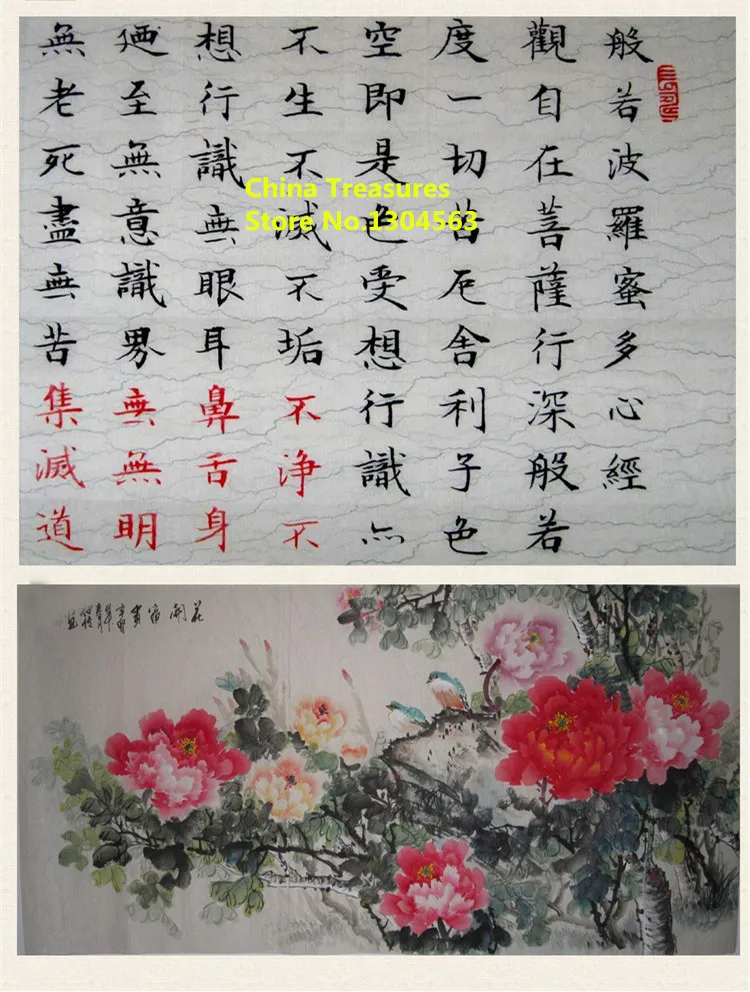 般若波羅蜜多心經
觀自在菩薩行深般若
度一切苦厄舍利子色
空即是色受想行識亦
不生不滅不垢不浄不
想行識無眼耳鼻舌身
廼至無意識界無無明
無老死盡無苦集滅道
China Treasures
Store No.1304563
花開富貴
辛卯年